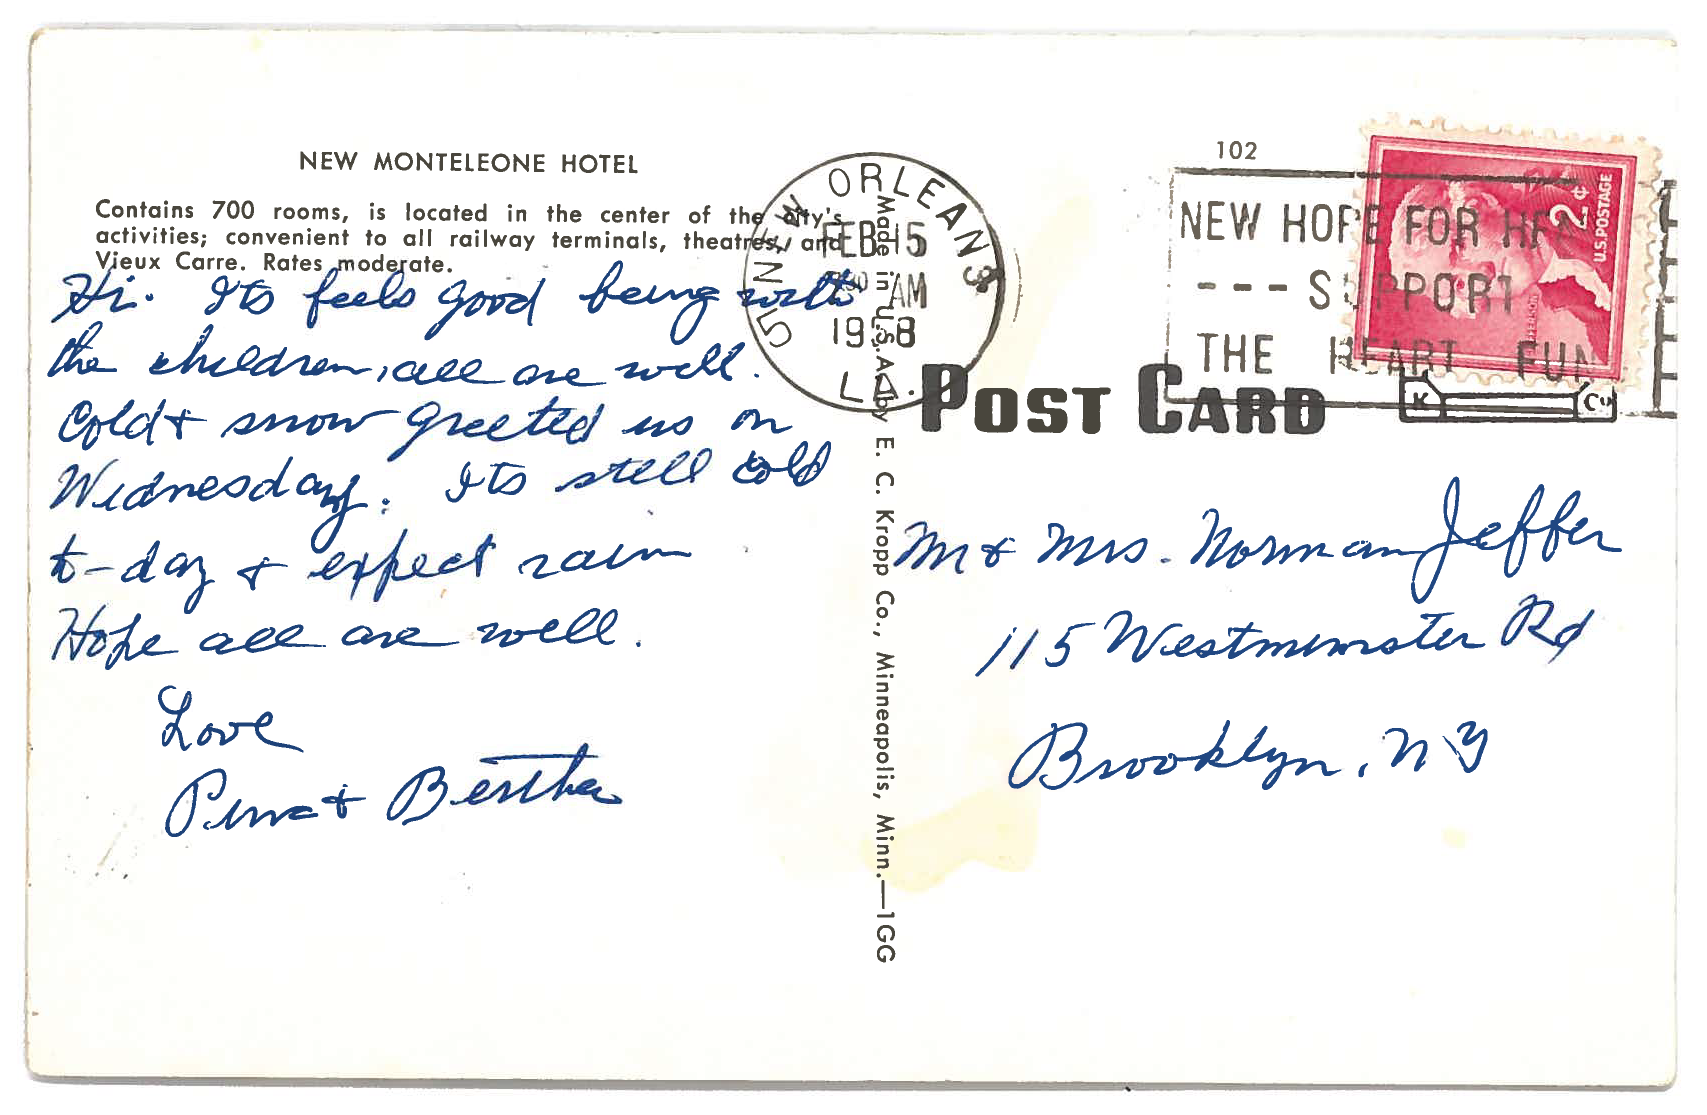 NEW MONTELEONE HOTEL
Contains 700 rooms, is located in the center of the city's
activities; convenient to all railway terminals, theatres, and
Vieux Carre. Rates moderate.
Hi. Its feels good being with
the children, all are well.
Cold & snow greeted us on
Wednesday. Its still cold
to-day & expect rain
Hope all are well.
Love
& Bertha
Made in U.S.A. by E. C. Kropp Co., Minneapolis, Minn.—1GG
NEW ORLEANS
FEB 15
AM
LA.
102
NEW HOPE FOR
--- SUPPORT
THE HEART FUN
2¢
U.S. POSTAGE
JEFFERSON
POST CARD
K Co
M & Mrs. Norman Jeffer
115 Westminster Rd
Brooklyn, NY